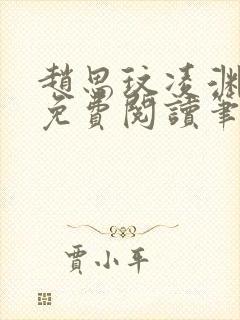 趙思玟凌淵
免費閱讀筆
賈小平